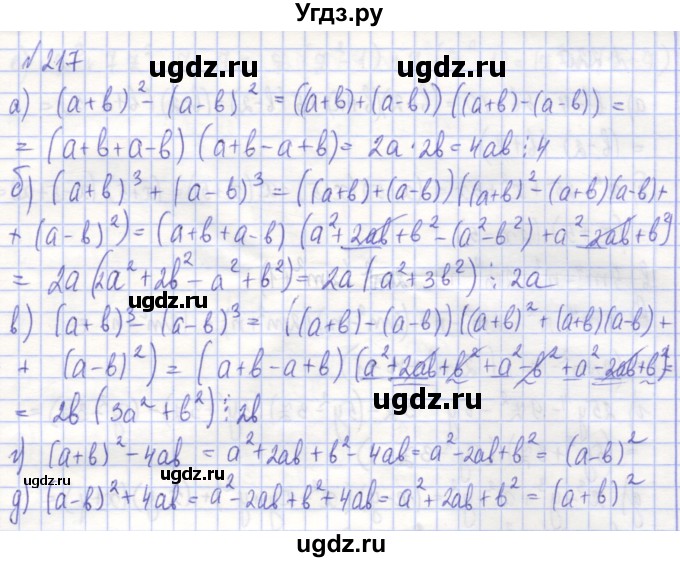 Угдз.ру
№ 217
ugdz.ru ugdz.ru
а) (a+b)² - (a-b)² = ((a+b)+(a-b)) ((a+b)-(a-b)) =
= (a+b+a-b) (a+b-a+b) = 2a · 2b = 4ab ⋮ 4
б) (a+b)³ + (a-b)³ = ((a+b)+(a-b)) ((a+b)² - (a+b)(a-b) +
+ (a-b)²) = (a+b+a-b) (a²+2ab+b² - (a²-b²) + a²-2ab+b²)
ugdz.ru
= 2a (2a²+2b² - a²+b²) = 2a (a²+3b²) ⋮ 2a
ugdz.ru
в) (a+b)³ - (a-b)³ = ((a+b)-(a-b)) ((a+b)² + (a+b)(a-b) +
+ (a-b)²) = (a+b-a+b) (a²+2ab+b²+a²-b²+a²-2ab+b²) =
ugdz.ru
= 2b (3a²+b²) ⋮ 2b
г) (a+b)² - 4ab = a²+2ab+b² - 4ab = a²-2ab+b² = (a-b)²
ugdz.ru ugdz.ru
д) (a-b)² + 4ab = a²-2ab+b²+4ab = a²+2ab+b² = (a+b)²
ugdz.ru